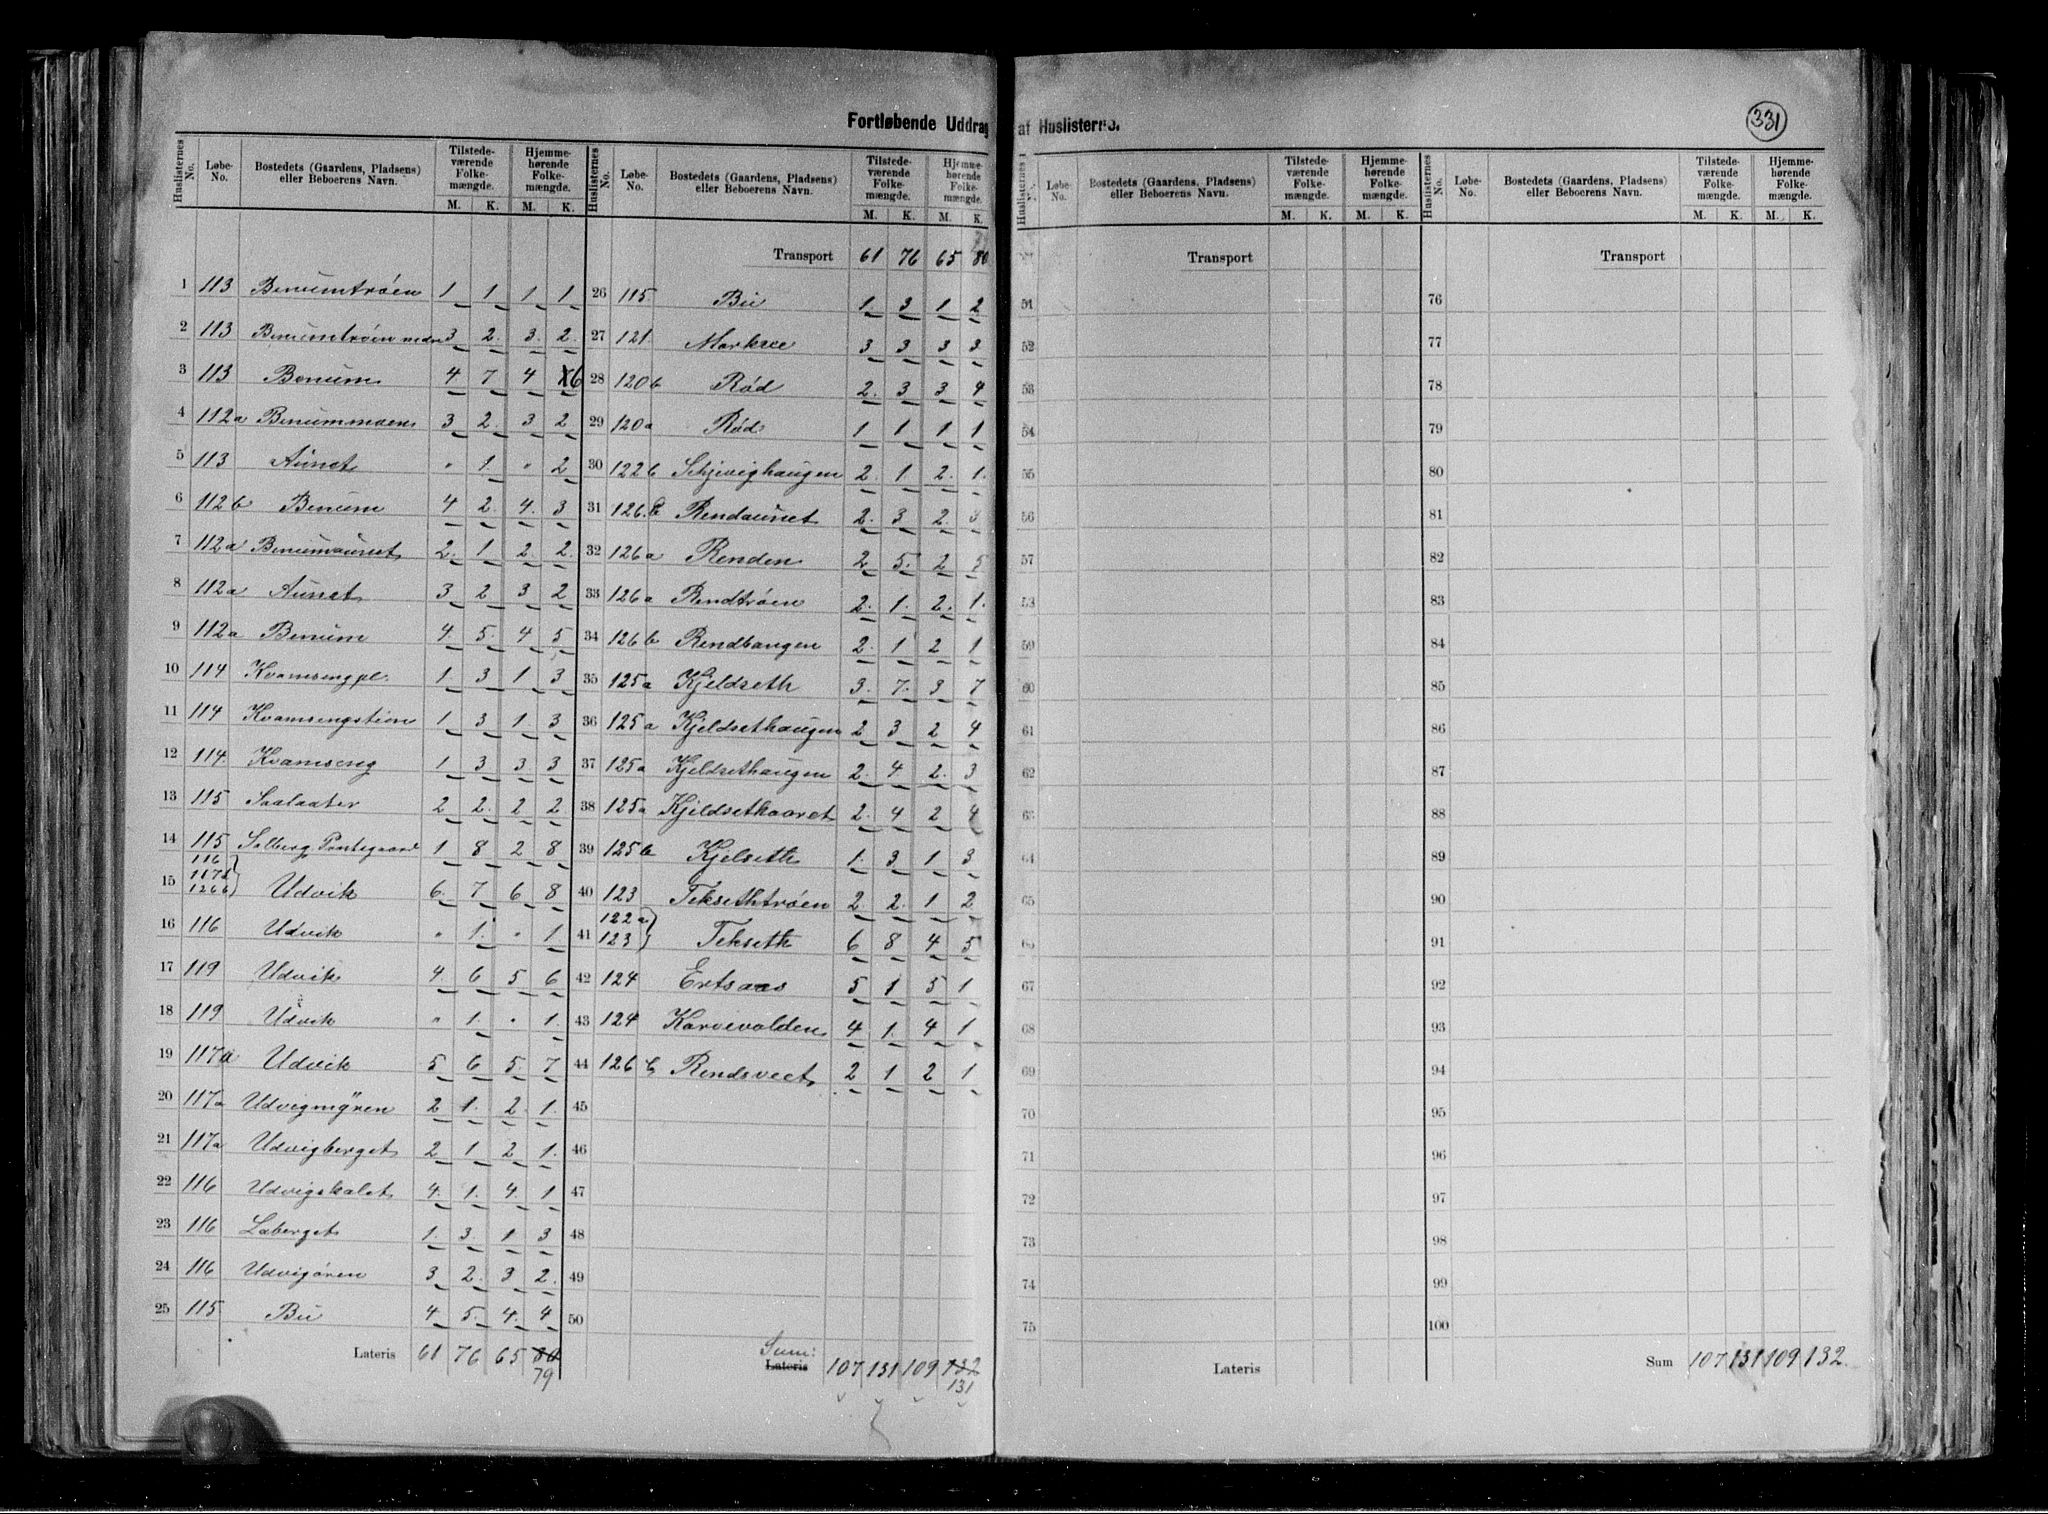 Fortløbende Uddrag af Huslisterne.
331
Huslisternes No. Løbe-No. Bostedets (Gaardens, Pladsens) eller Beboerens Navn. Tilstedeværende Folkemængde. M. K. Hjemmehørende Folkemængde. M. K.
1 113 Benumtrøen 1 1 1 1
2 113 Benumtrøen nedre 3 2. 3. 2.
3 113 Benum 4 7 4 6
4 112a Benummoen 3 2. 3 2
5 113 Aunet " 1 " 2
6 112b Benum 4 2. 4. 3
7 112a Benumaunet 2. 1 2. 2.
8 112a Aunet 3 2 3 2
9 112a Benum 4. 5. 4 5
10 114 Kvamsengpl. 1 3 1 3
11 114 Kvamsengstien 1 3 1 3
12 114. Kvamseng 1 3 3 3
13 115 Saalaater 2 2. 2 2
14 115 Solberg, Prestegaard 1 8 2 8
15 116 117b 126b } Udvik 6. 7 6 8
16 116 Udvik " 1. " 1
17 119 Udvik 4 6 5 6
18 119 Udvik " 1. " 1.
19 117a Udvik 5 6 5 7
20 117a Udvigmyren 2 1. 2. 1.
21 117a Udvigberget 2 1 2 1.
22 116 Udvigskalet 4. 1. 4. 1
23 116 Laberget 1. 3. 1 3
24 116 Udvigøren 3 2. 3 2.
25 115 Bu 4 5. 4. 4
Lateris 61 76 65 80
79
Huslisternes No. Løbe-No. Bostedets (Gaardens, Pladsens) eller Beboerens Navn. Tilstedeværende Folkemængde. M. K. Hjemmehørende Folkemængde. M. K.
Transport 61 76 65 80
26 115 Bu 1. 3 1 2
27 121 Marksee 3 3 3 3
28 120b Rød 2. 3 3 4
29 120a Rød 1 1 1 1
30 122b Schjevighaugen 2. 1 2. 1.
31 126.b Rendaunet 2. 3 2. 3
32 126a Renden 2 5. 2 5
33 126a Rendtrøen 2. 1. 2. 1.
34 126b Rendbangen 2. 1 2 1
35 125a Kjeldseth 3. 7. 3 7
36 125a Kjeldsethaugen 2 3 2 4
37 125a Kjeldsethaugen 2. 4 2. 3
38 125a Kjeldsethaaret 2. 4 2 4
39 125b Kjelseth 1. 3 1 3
40 123 Teksethtrøen 2 2. 1 2
41 122a 123 } Tekseth 6 8 4 5
42 124 Ertsaas 5 1 5 1
43 124 Karvevolden 4 1. 4 1
44 126b Rendsveet 2 1 2 1
45
46
47
48
49
50
Sum:
Lateris 107 131 109 132
131
Huslisternes Løbe-No. Bostedets (Gaardens, Pladsens) eller Beboerens Navn. Tilstedeværende Folkemængde. M. K. Hjemmehørende Folkemængde. M. K.
Transport
51
52
53
54
55
56
57
58
59
60
61
62
63
64
65
66
67
68
69
70
71
72
73
74
75
Lateris
Huslisternes No. Løbe-No. Bostedets (Gaardens, Pladsens) eller Beboerens Navn. Tilstedeværende Folkemængde. M. K. Hjemmehørende Folkemængde. M. K.
Transport
76
77
78
79
80
81
82
83
84
85
86
87
88
89
90
91
92
93
94
95
96
97
98
99
100
Sum 107 131 109 132.